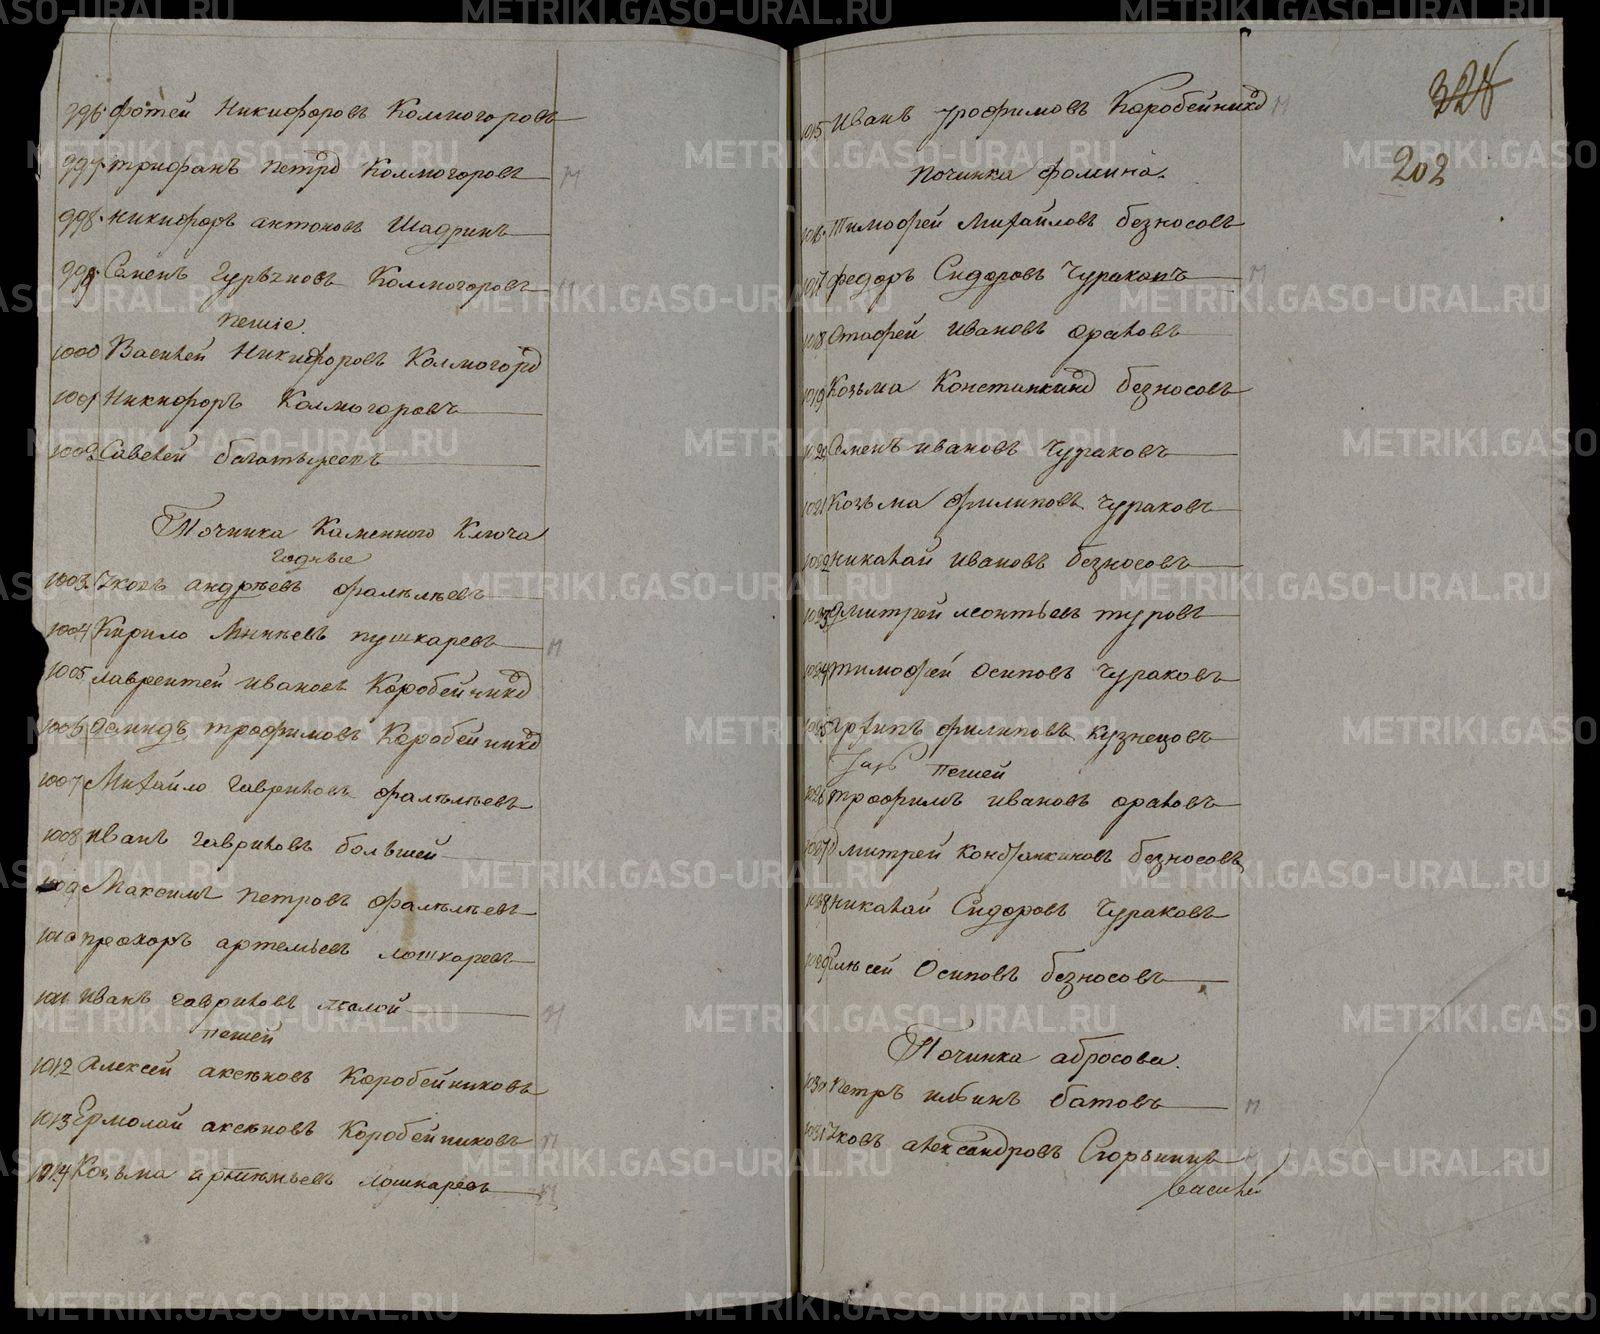 996. фотей Никифоровъ Колмогоровъ
997. трифанъ петровъ Колмогоровъ м
998. никифоръ антоновъ Шадринъ
999. Семенъ Гурьяновъ Колмогоровъ м
пешіе.
1000 Василей Никифоровъ Колмогоров
1001 Никифоръ Колмогоровъ
1002 Савелей багатыревъ
Починка Каменного Ключа
годные
1003. Яковъ андрѣевъ фалѣлѣевъ
1004 Кирило Минѣевъ пушкаревъ м
1005 лаврентей ивановъ Коробейников
1006 демидъ трофимовъ Коробейников
1007 Михайло гавриловъ фалѣлѣевъ
1008 иванъ гавриловъ большей
1009 Максимъ петровъ фалѣлѣевъ
1010 прохоръ артемьевъ лошкаревъ
1011 иванъ гавриловъ малой м
пешей
1012 алексей аксѣновъ Коробейниковъ
1013 Ермолай аксѣновъ Коробейниковъ м
1014 Козьма артемьевъ лошкаревъ м
328
202
1015 иванъ трофимовъ Коробейников м
починка фомина.
1016. Тимофей Михайловъ безносовъ
1017 федоръ Сидоровъ Чураковъ м
1018 Стафей ивановъ араловъ
1019 Козьма Констанкинов безносовъ
1020 Семенъ ивановъ Чураковъ
1021 Козьма филиповъ Чураковъ
1022 николай ивановъ безносовъ
1023 дмитрей леонтьевъ туровъ
1024 тимофей осиповъ Чураковъ
1025 архипъ филиповъ Кузнецовъ
пешей
1026 трофимъ ивановъ араловъ
1027 дмитрей Констанкиновъ безносовъ
1028 николай Сидоровъ Чураковъ
1029 Елисей Осиповъ безносовъ
Починка абросова.
1030 петръ ильинъ батовъ м
1031 Яковъ александровъ
василей
METRIKI.GASO-URAL.RU